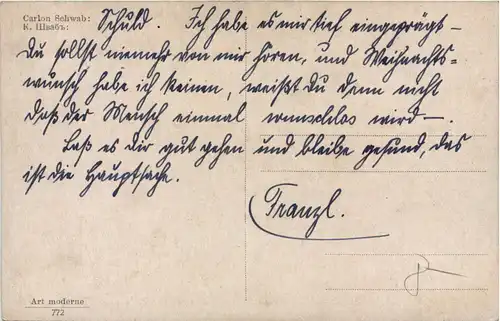 Carlon Schwab:
E. Illasön:
Schuld. Ich habe es mir tief eingeprägt –
Du sollst niemehr von mir hören, und Weihnachts=
wunsch habe ich keinen, weißt Du denn nicht
daß der Mensch einmal wunschlos wird –.
Laß es dir gut gehen und bleibe gesund, das
ist die Hauptsache.
Franzl.
Art moderne
772